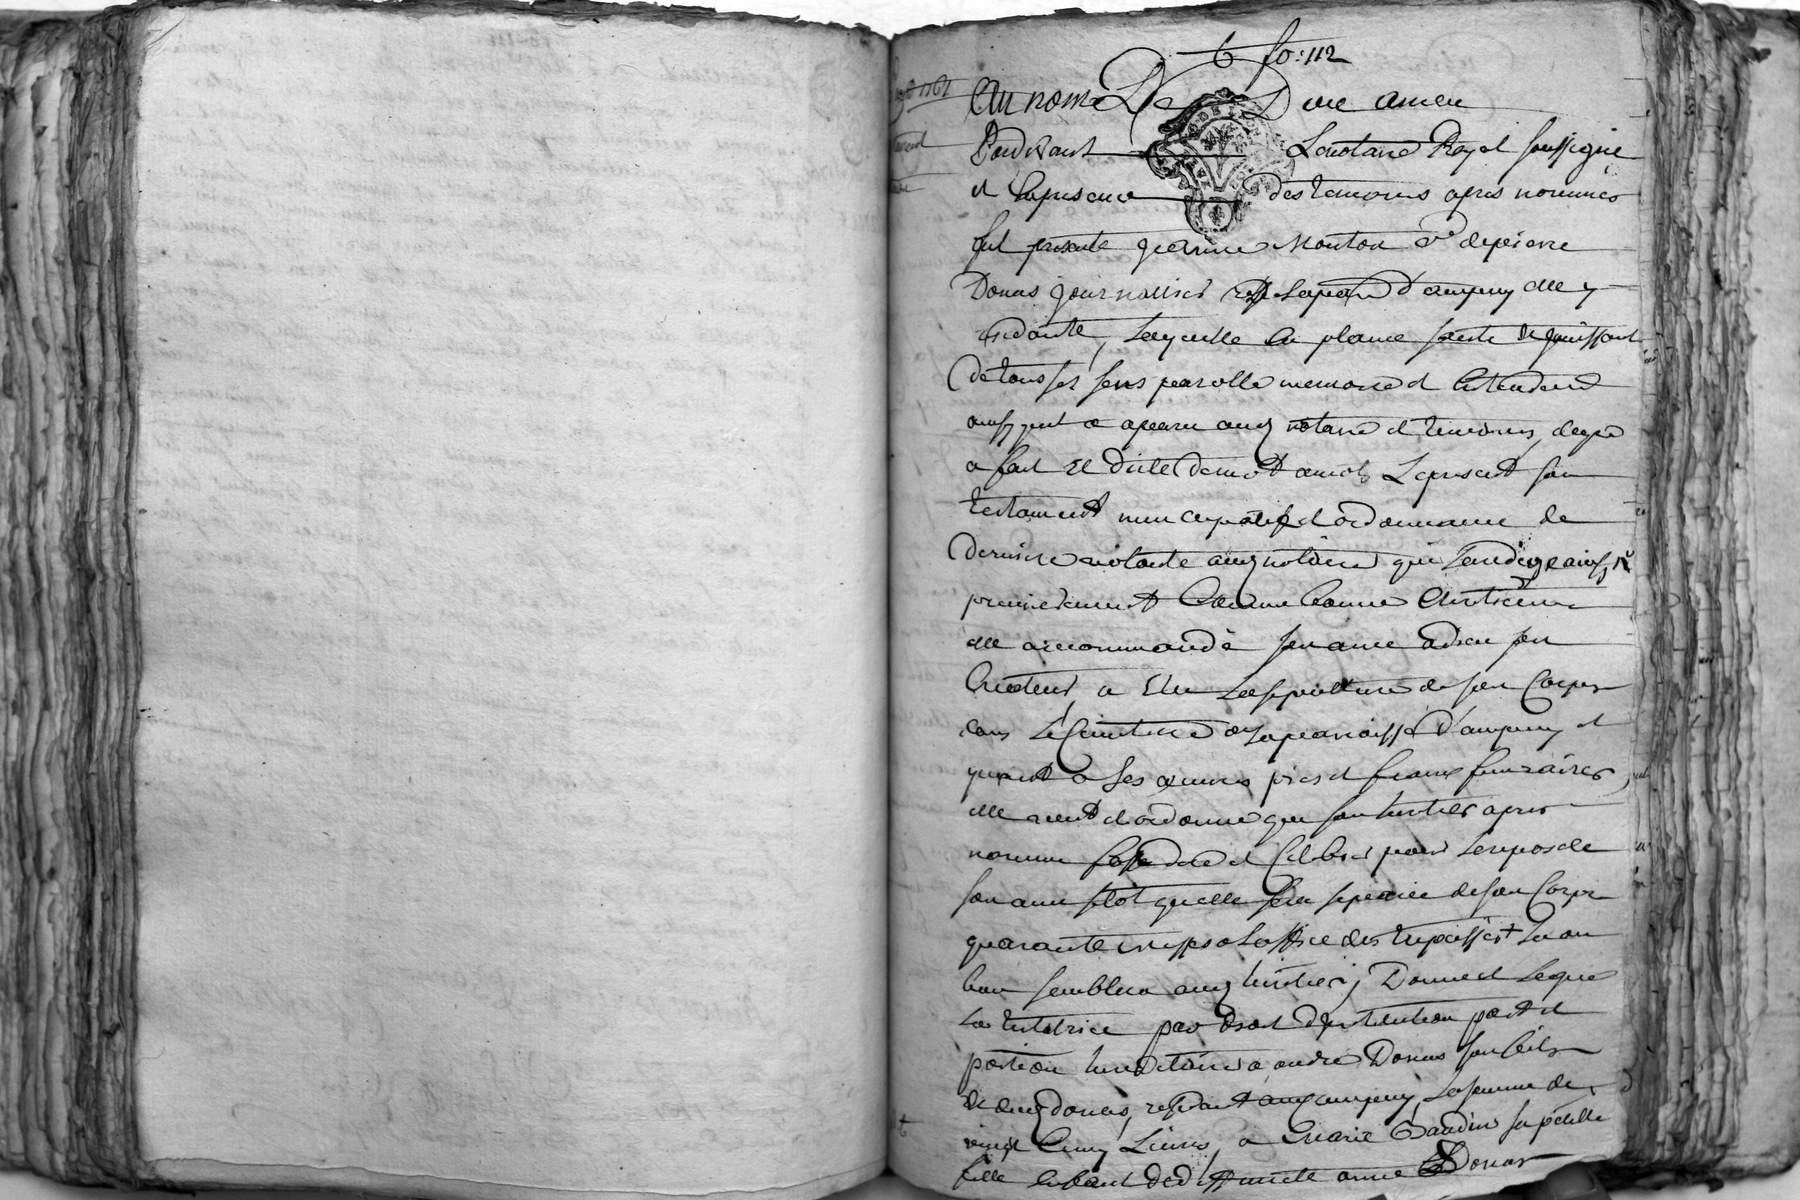 fo: 112
Au nom De Dieu amen
Pardevant Le notaire Royal soussigné
et en presence des temoins apres nommés
fut presente jeanne Mouton v.e de pierre
Donas journallier de la par. d'ampuy elle y
residante, Laquelle en pleine santé et jouissant
de tous ses sens parolle memoire et entendement
ainsy quil a aparu aud notaire et temoins, de gré
a fait et dicté de mot a mot Le present son
testament nuncupatif et ordonnance de
derniere volonté aud notaire qui l'a redigé ainsy
premierement Comme bonne Chretienne
elle a recommandé son ame a dieu son
Createur, a Elu La sepulture de son Corps
dans Le Cimetiere de la paroisse d'ampuy et
quant a ses œuvres pies et fraix funeraires,
elle veut et ordonne que son heritier apres
nommé fasse dire et Celebrer pour Le repos de
son ame sitot quelle sera separée de son Corps
quarante messes a Loffice des trepassés + La ou
bon semblera aud heritier, Donne et Legue
La testatrice par droit d'institution part et
portion hereditaire a andré Donas son fils
et dud donas, residant aud ampuy, La somme de
vingt Cinq Livres, a Marie Gaudin sa petite
fille enfant de deffuncte anne Donas